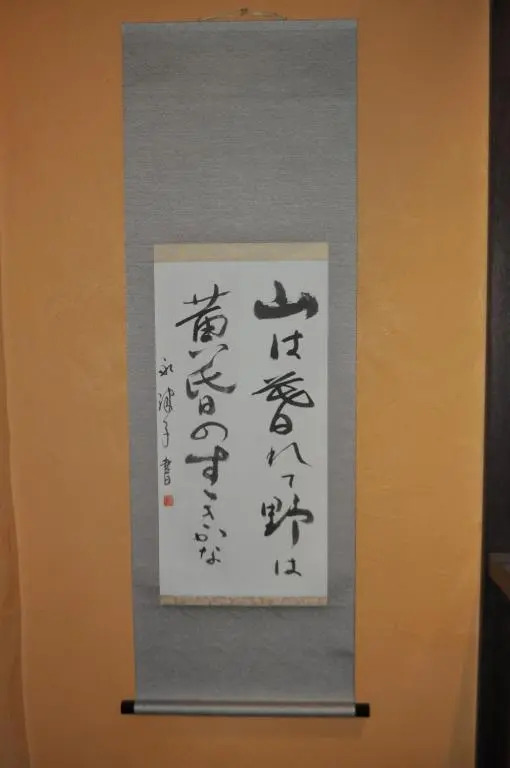 山は暮れて野は
黄昏のすゝきかな
書